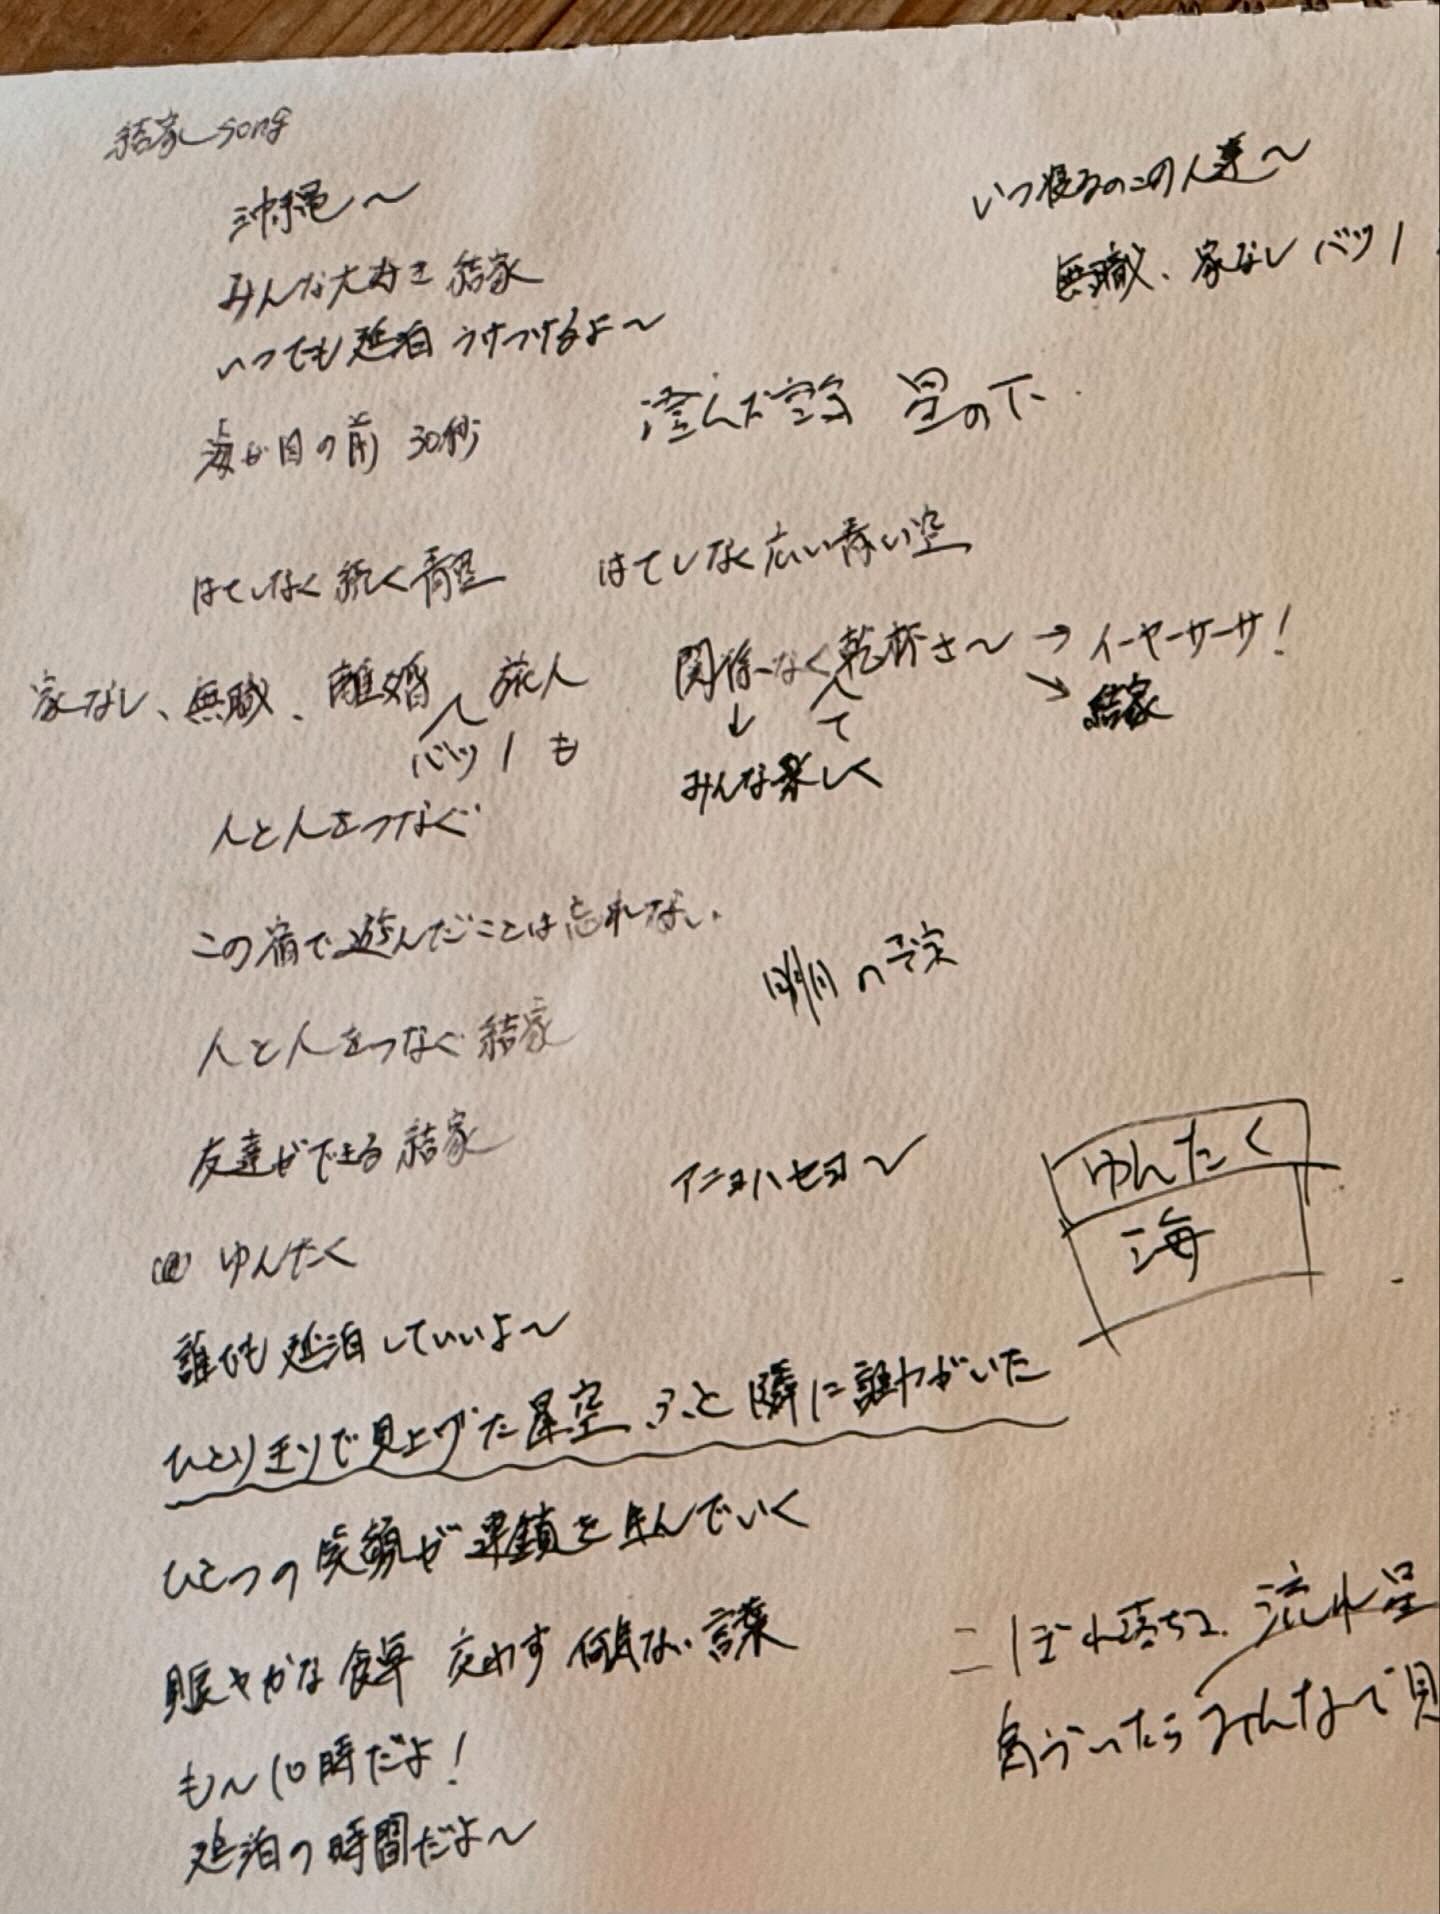 結家song
沖縄〜
いつ寝るのこの人達〜
みんな大好き 結家
無職、家なし バツ1
いつでも延泊 うけつけるよ〜
澄んだ空気 星の下
海が目の前 30秒
はてしなく続く青空
はてしなく広い青い空
家なし、無職、離婚 旅人
バツ1も
関係なく乾杯さ〜 → イーヤーサーサ!
て
結家
みんな楽しく
人と人をつなぐ
この宿で遊んだことは忘れない
明日の予定
人と人をつなぐ結家
友達ができる 結家
アニョハセヨ〜
ゆんたく
海
ゆんたく
誰でも延泊していいよ〜
ひとりきりで見上げた星空 ふと隣に誰かがいた
ひとつの笑顔が連鎖を生んでいく
賑やかな食卓 交わす何気ない言葉
こぼれ落ちる 流れ星
気づいたらみんなで見
も〜10時だよ!
延泊の時間だよ〜